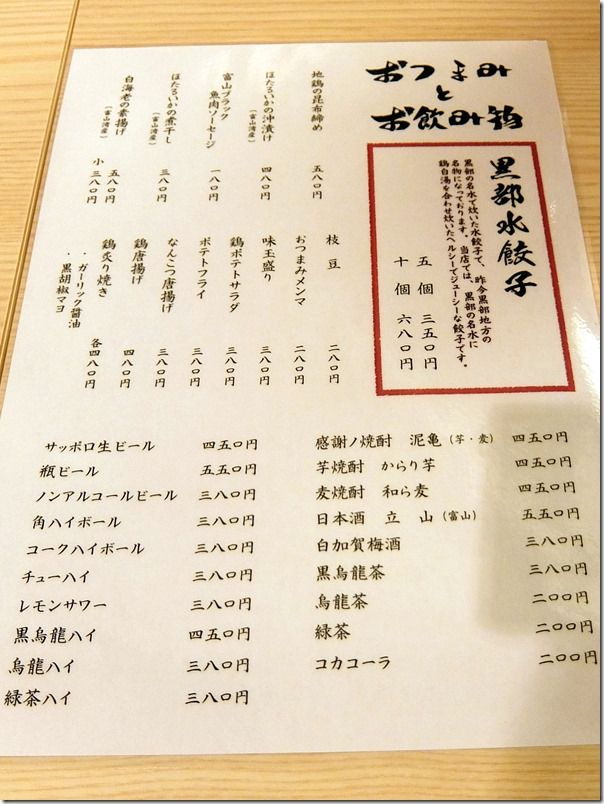 おつまみ
と
お飲み物
黒部水餃子
黒部の名水で炊いた水餃子で、昨今黒部地方の
名物になっております。当店では、黒部の名水に
鶏白湯を合わせ炊いたヘルシーでジューシーな餃子です。
五個 三五〇円
十個 六八〇円
地鶏の昆布締め 五八〇円
ほたるいかの沖漬け(富山湾産) 四八〇円
富山ブラック
魚肉ソーセージ 一八〇円
ほたるいかの素干し(富山湾産) 三八〇円
白海老の素揚げ(富山湾産) 五八〇円
小 三八〇円
枝豆 二八〇円
おつまみメンマ 二八〇円
味玉盛り 二八〇円
鶏ポテトサラダ 三八〇円
ポテトフライ 三八〇円
なんこつ唐揚げ 三八〇円
鶏唐揚げ 四八〇円
鶏炙り焼き 各四八〇円
・ガーリック醤油
・黒胡椒マヨ
サッポロ生ビール 四五〇円
瓶ビール 五五〇円
ノンアルコールビール 三八〇円
角ハイボール 三八〇円
コークハイボール 三八〇円
チューハイ 三八〇円
レモンサワー 三八〇円
黒烏龍ハイ 四五〇円
烏龍ハイ 三八〇円
緑茶ハイ 三八〇円
感謝ノ焼酎 泥亀(芋・麦) 四五〇円
芋焼酎 からり芋 四五〇円
麦焼酎 和ら麦 四五〇円
日本酒 立山(富山) 五五〇円
白加賀梅酒 三八〇円
黒烏龍茶 三八〇円
烏龍茶 二〇〇円
緑茶 二〇〇円
コカコーラ 二〇〇円